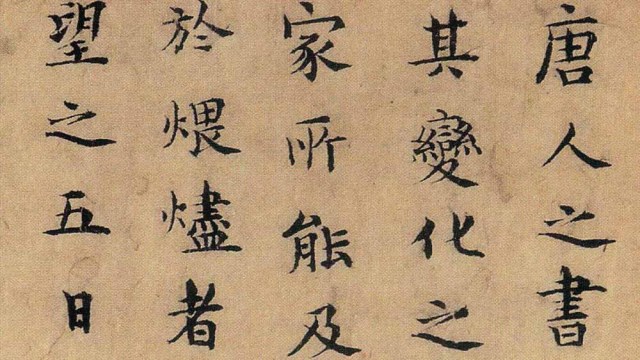 唐人之書
其變化之
家所能及
於煨燼者
望之五日